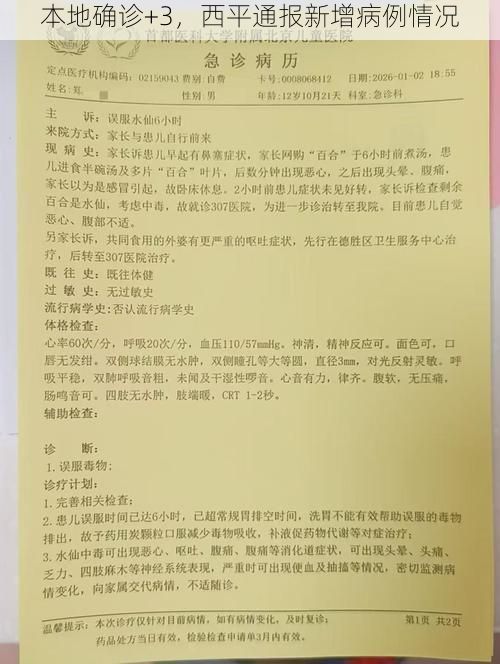 本地确诊+3，西平通报新增病例情况
首都医科大学附属北京儿童医院
急诊病历
定点医疗机构编码：02159043 费别：自费 卡号：0008068412 日期：2026-01-02 18:55
姓名：郑 性别：男 年龄：12岁10月21天 科室：急诊科
主 诉：误服水仙6小时
来院方式：家长与患儿自行前来
现 病 史：家长诉患儿早起有鼻塞症状，家长网购“百合”于6小时前煮汤，患
儿进食半碗汤及多片“百合”叶片，后数分钟出现恶心，之后出现头晕、腹痛，
家长以为是感冒引起，故卧床休息。2小时前患儿症状未见好转，家长诉检查剩余
百合是水仙，考虑中毒，故就诊307医院，为进一步诊治转至我院。目前患儿自觉
恶心、腹部不适。
另家长诉，共同食用的外婆有更严重的呕吐症状，先行在德胜区卫生服务中心治
疗，后转至307医院治疗。
既 往 史：既往体健
过 敏 史：无过敏史
流行病学史:否认流行病学史
体格检查：
心率60次/分，呼吸20次/分，血压110/57mmHg。神清，精神反应可。面色可。口
唇无发绀。双侧球结膜无水肿，双侧瞳孔等大等圆，直径3mm，对光反射灵敏。呼
吸平稳，双肺呼吸音粗，未闻及干湿性啰音。心音有力，律齐。腹软，无压痛，
肠鸣音可。四肢无水肿，肢端暖，CRT 1-2秒。
辅助检查：
诊 断：
1.误服毒物；
诊疗计划：
1.完善相关检查；
2.患儿误服时间已达6小时，已超常规胃排空时间，洗胃不能有效帮助误服的毒物
排出，故予药用炭颗粒口服减少毒物吸收，补液促药物代谢等对症治疗；
3.水仙中毒可出现恶心、呕吐、腹痛、腹痛等消化道症状，可出现头晕、头痛、
乏力、四肢麻木等神经系统表现，严重时可出现便血及抽搐等情况，密切监测病
情变化，向家属交代病情，不适随诊。
温馨提示：本次诊疗仅针对目前病情，如有病情变化，及时复诊；
药品处方当日有效，检验检查申请单3月内有效。
第1页 共2页